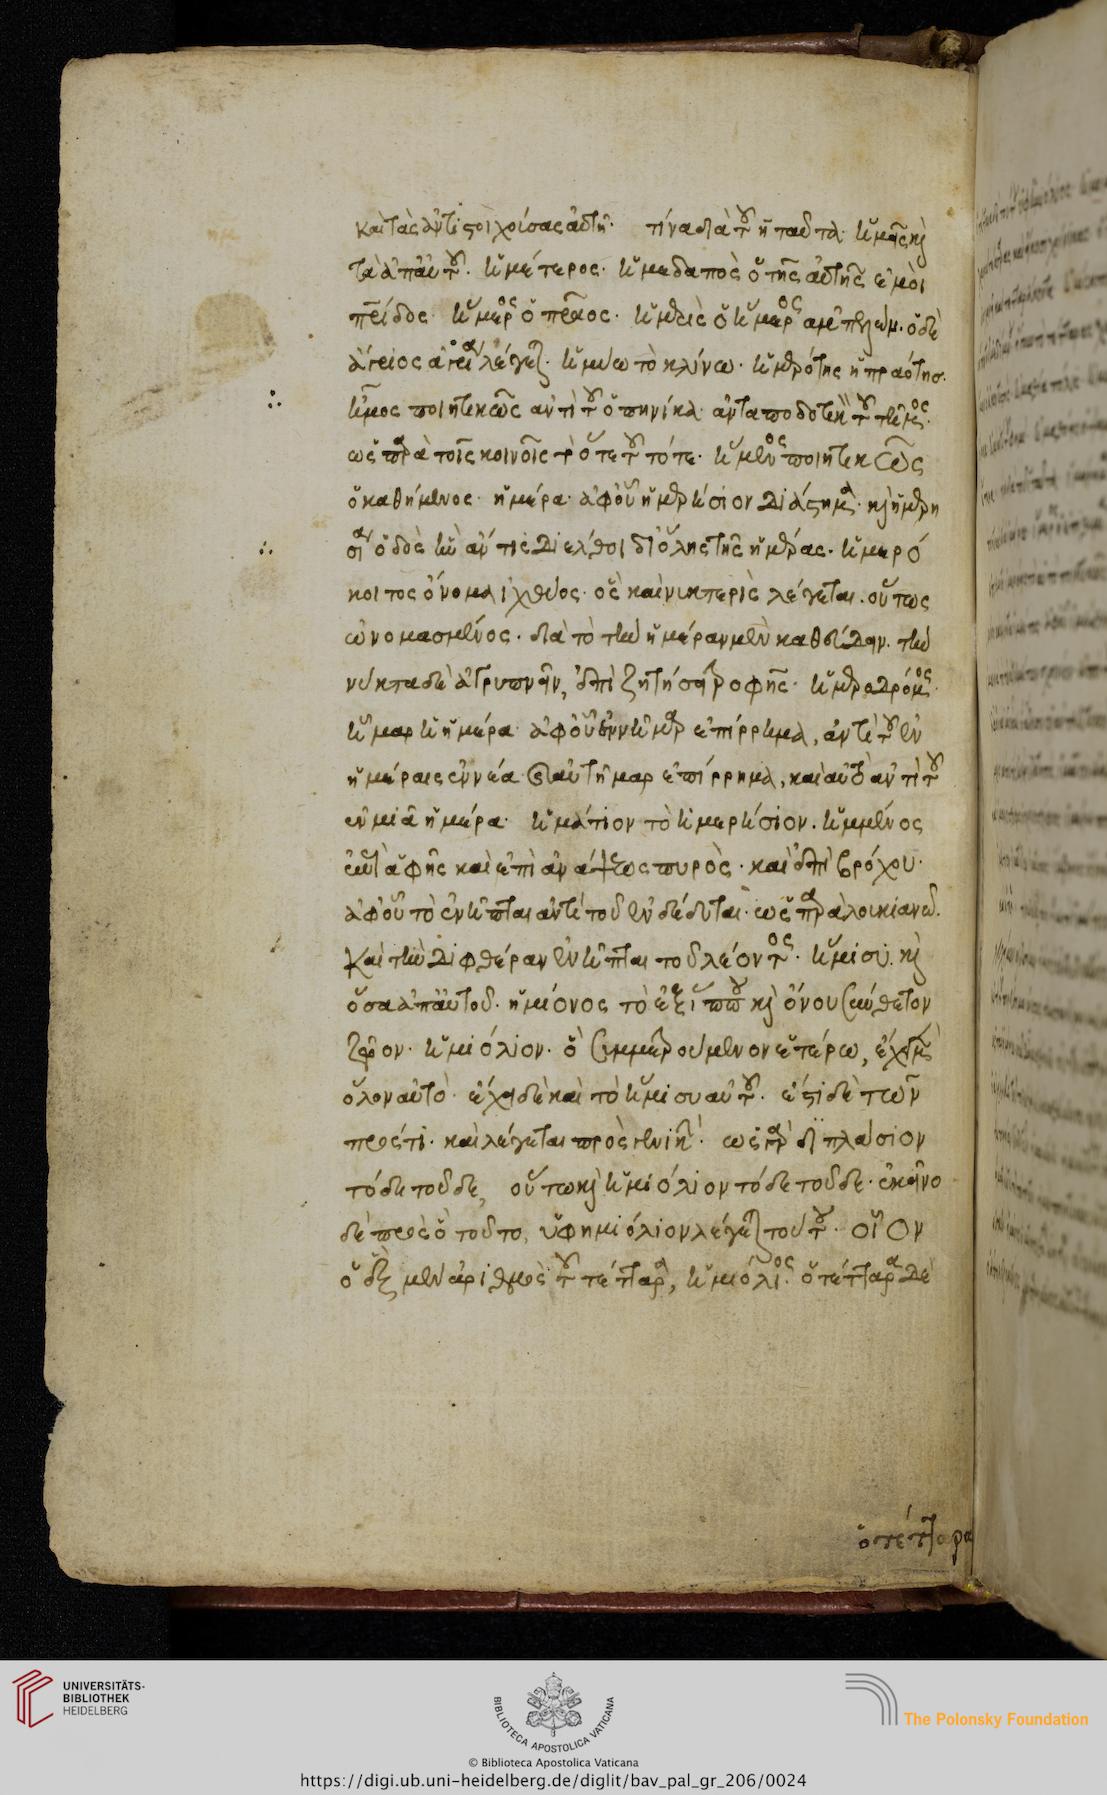 καὶ τὰς ἀντιστοιχούσας αὐτῇ· τίνα διὰ τοῦ η ταῦτα· ἡμεῖς καὶ
τὰ ἀπ' αὐτοῦ. ἡμέτερος. ἡμεδαπὸς ὁ τῆς αὐτῆς ἐμοὶ
πατρίδος. ἥμερος ὁ πρᾶος.
λέγεται. ἡμύω τὸ κλίνω. ἡμερότης ἡ πραότης.
ἦμος ποιητικῶς ἀντὶ τοῦ ὁπηνίκα· ἀνταποδοτικὴ τοῦ τῆμος.
ὡς παρὰ τοῖς κοινοῖς τὸ ὅτε τοῦ τότε. ἥμενος ποιητικῶς
ὁ καθήμενος. ἡμέρα· ἀφ' οὗ ἡμερήσιον διάστημα· καὶ
οὐδὲ ἢν ἄν τις διέλθοι δι' ὅλης τῆς ἡμέρας. ἡμερό
κοιτος ὄνομα ἰχθύος. ὃς καὶ νυκτερὶς λέγεται. οὕτως
ὠνομασμένος. διὰ τὸ τὴν ἡμέραν μὲν καθεύδειν. τὴν
νύκτα δὲ ἀγρυπνεῖν, ἐπὶ ζητήσει τροφῆς. ἡμεροδρόμος.
ἦμαρ ἡ ἡμέρα· ἀφ' οὗ ἐννῆμαρ ἐπίρρημα, ἀντὶ τοῦ ἐν
ἡμέραις ἐννέα· καὶ αὐτῆμαρ ἐπίρρημα, καὶ αὐτὸ ἀντὶ τοῦ
ἐν μιᾷ ἡμέρᾳ. ἡμάτιον τὸ ἡμερήσιον. ἡμμένος
ἐπὶ ἁφῆς καὶ ἐπὶ ἀνάψεως πυρός. καὶ ἐπὶ βρόχου.
ἀφ' οὗ τὸ ἐνῆπται ἀντὶ τοῦ ἐνδέδυται. ὡς παρὰ λουκιανῷ.
καὶ τὴν διφθέραν ἐνῆπται τοῦ λέοντος. ἥμισυ. καὶ
ὅσα ἀπ' αὐτοῦ. ἡμίονος τὸ ἐξ ἵππου καὶ ὄνου σύνθετον
ζῷον. ἡμιόλιον. ὃ συμμετρούμενον ἑτέρῳ, ἔχει μὲν
ὅλον αὐτό. ἔχει δὲ καὶ τὸ ἥμισυ αὐτοῦ. ἔστι δὲ τῶν
πρός τι. καὶ λέγεται πρὸς γενικήν. ὡς γὰρ διπλάσιον
τόδε τοῦδε, οὕτω καὶ ἡμιόλιον τόδε τοῦδε. ἐκεῖνο
δὲ πρὸς ὃ τοῦτο, ὑφημιόλιον λέγεται τούτου. οἷον
ὁ ἓξ μὲν ἀριθμὸς τοῦ τέτταρα, ἡμιόλιος. ὁ τέτταρα δὲ
ὁ τέτταρα
UNIVERSITÄTS-
BIBLIOTHEK
HEIDELBERG
BIBLIOTECA APOSTOLICA VATICANA
The Polonsky Foundation
© Biblioteca Apostolica Vaticana
https://digi.ub.uni-heidelberg.de/diglit/bav_pal_gr_206/0024